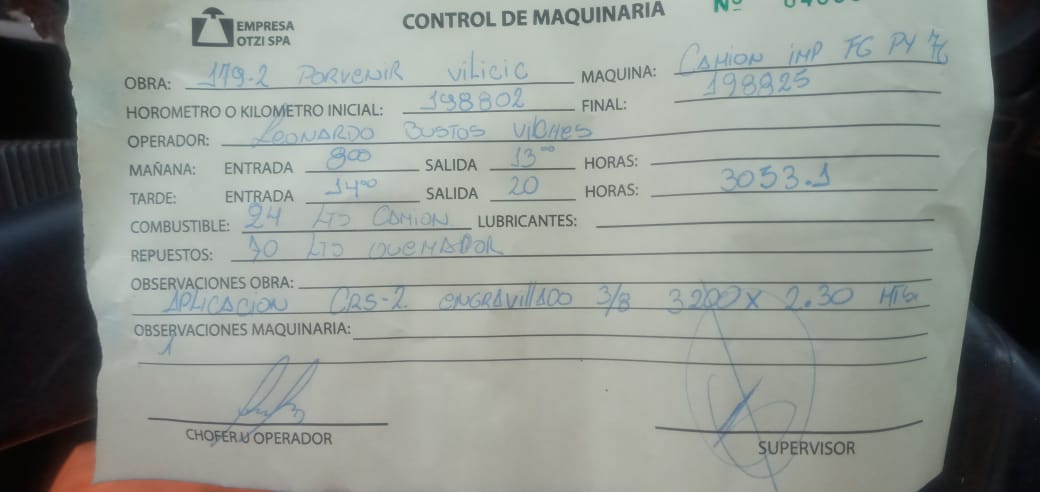 EMPRESA
OTZI SPA
CONTROL DE MAQUINARIA
Nº
OBRA: 179-2 PORVENIR VILICIC MAQUINA: CAMION IMP FG PY 76
HOROMETRO O KILOMETRO INICIAL: 198802 FINAL: 198825
OPERADOR: LEONARDO BUSTOS VILCHES
MAÑANA: ENTRADA 800 SALIDA 13°° HORAS:
TARDE: ENTRADA 14°° SALIDA 20 HORAS: 3053.1
COMBUSTIBLE: 24 LTS CAMION LUBRICANTES:
REPUESTOS: 70 LTS QUEMADOR
OBSERVACIONES OBRA:
APLICACION CRS-2 ENGRAVILLADO 3/8 3200 X 2.30
OBSERVACIONES MAQUINARIA:
1
CHOFER U OPERADOR
SUPERVISOR